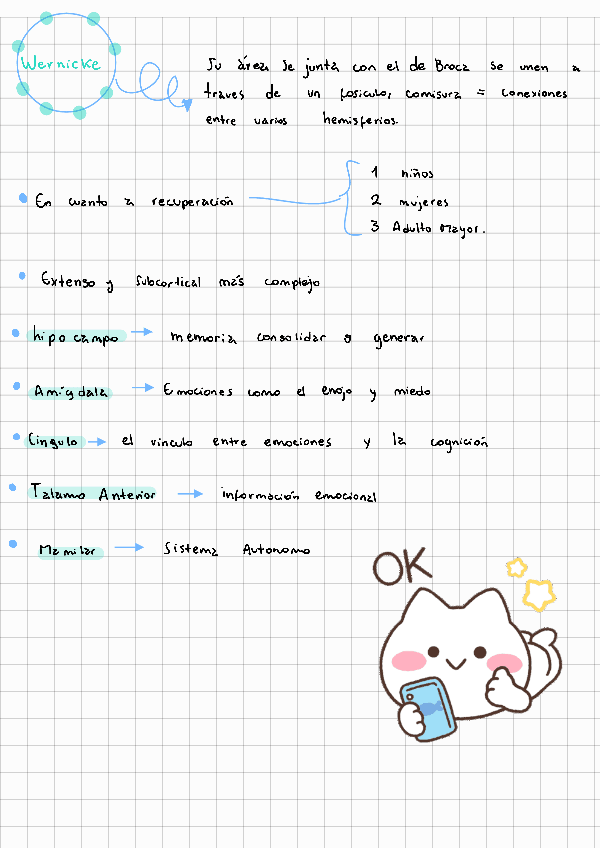 Wernicke
Su área se junta con el de Broca se unen a
traves de un fosiculo, comisura = conexiones
entre varios hemisferios.
En cuanto a recuperación
1 niños
2 mujeres
3 Adulto Mayor.
Extenso y subcortical más complejo
hipocampo → memoria consolidar o generar
Amígdala → Emociones como el enojo y miedo
Cíngulo → el vinculo entre emociones y la cognición
Talamo Anterior → información emocional
Mamilar → Sistema Autonomo
OK